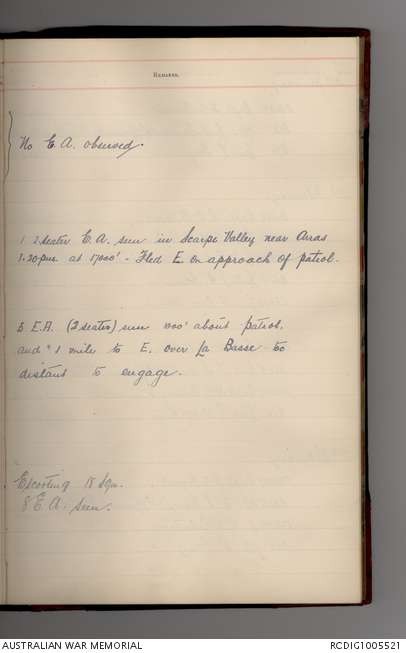 REMARKS.
No E.A. observed.
1 2 seater E.A. seen in Scarpe Valley near Arras
3.20 pm at 17,000' - Fled E. on approach of patrol.
5 E.A. (2 seater) seen 1000' about patrol.
and 1 mile to E. over La Basse too
distant to engage.
Escorting 18 Sqn.
8 E.A. seen.
AUSTRALIAN WAR MEMORIAL
RCDIG1005521